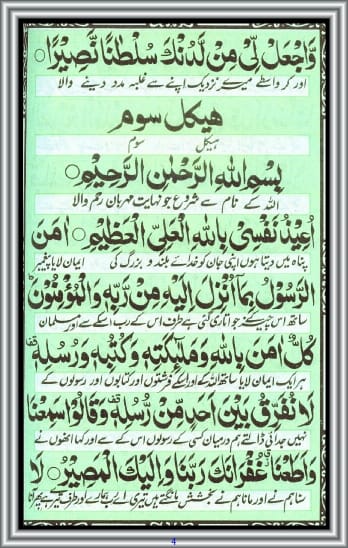 وَّاجْعَلْ لِّيْ مِنْ لَّدُنْكَ سُلْطَانًا نَّصِيْرًا ۝
اور کر واسطے میرے نزدیک اپنے سے غلبہ مدد دینے والا
هيكل سوم
ہیکل سوم
بِسْمِ اللهِ الرَّحْمٰنِ الرَّحِيْمِ ۝
اللہ کے نام سے شروع جو نہایت مہربان رحم والا
اُعِيْذُ نَفْسِيْ بِاللهِ الْعَلِيِّ الْعَظِيْمِ ۝ اٰمَنَ
پناہ میں دیتا ہوں اپنی جان کو خدائے بلند و بزرگ کی ایمان لایا پیغمبر
الرَّسُوْلُ بِمَآ اُنْزِلَ اِلَيْهِ مِنْ رَّبِّهٖ وَالْمُؤْمِنُوْنَ ؕ
ساتھ اس چیز کے جو اتاری گئی ہے طرف اس کے رب اسکے سے اور مسلمان
كُلٌّ اٰمَنَ بِاللهِ وَمَلٰٓئِكَتِهٖ وَكُتُبِهٖ وَرُسُلِهٖ ۚ
ہر ایک ایمان لایا ساتھ اللہ کے اور اسکے فرشتوں اور کتابوں اور رسولوں کے
لَا نُفَرِّقُ بَيْنَ اَحَدٍ مِّنْ رُّسُلِهٖ ۚ وَقَالُوْا سَمِعْنَا
نہیں جدائی ڈالتے ہم درمیان کسی کے رسولوں اس کے سے اور کہا انھوں نے
وَاَطَعْنَا غُفْرَانَكَ رَبَّنَا وَاِلَيْكَ الْمَصِيْرُ ۝ لَا
سنا ہم نے اور مانا ہم نے بخشش مانگتے ہیں تیری اے رب ہمارے اور طرف تیرے ہے پھر آنا
4